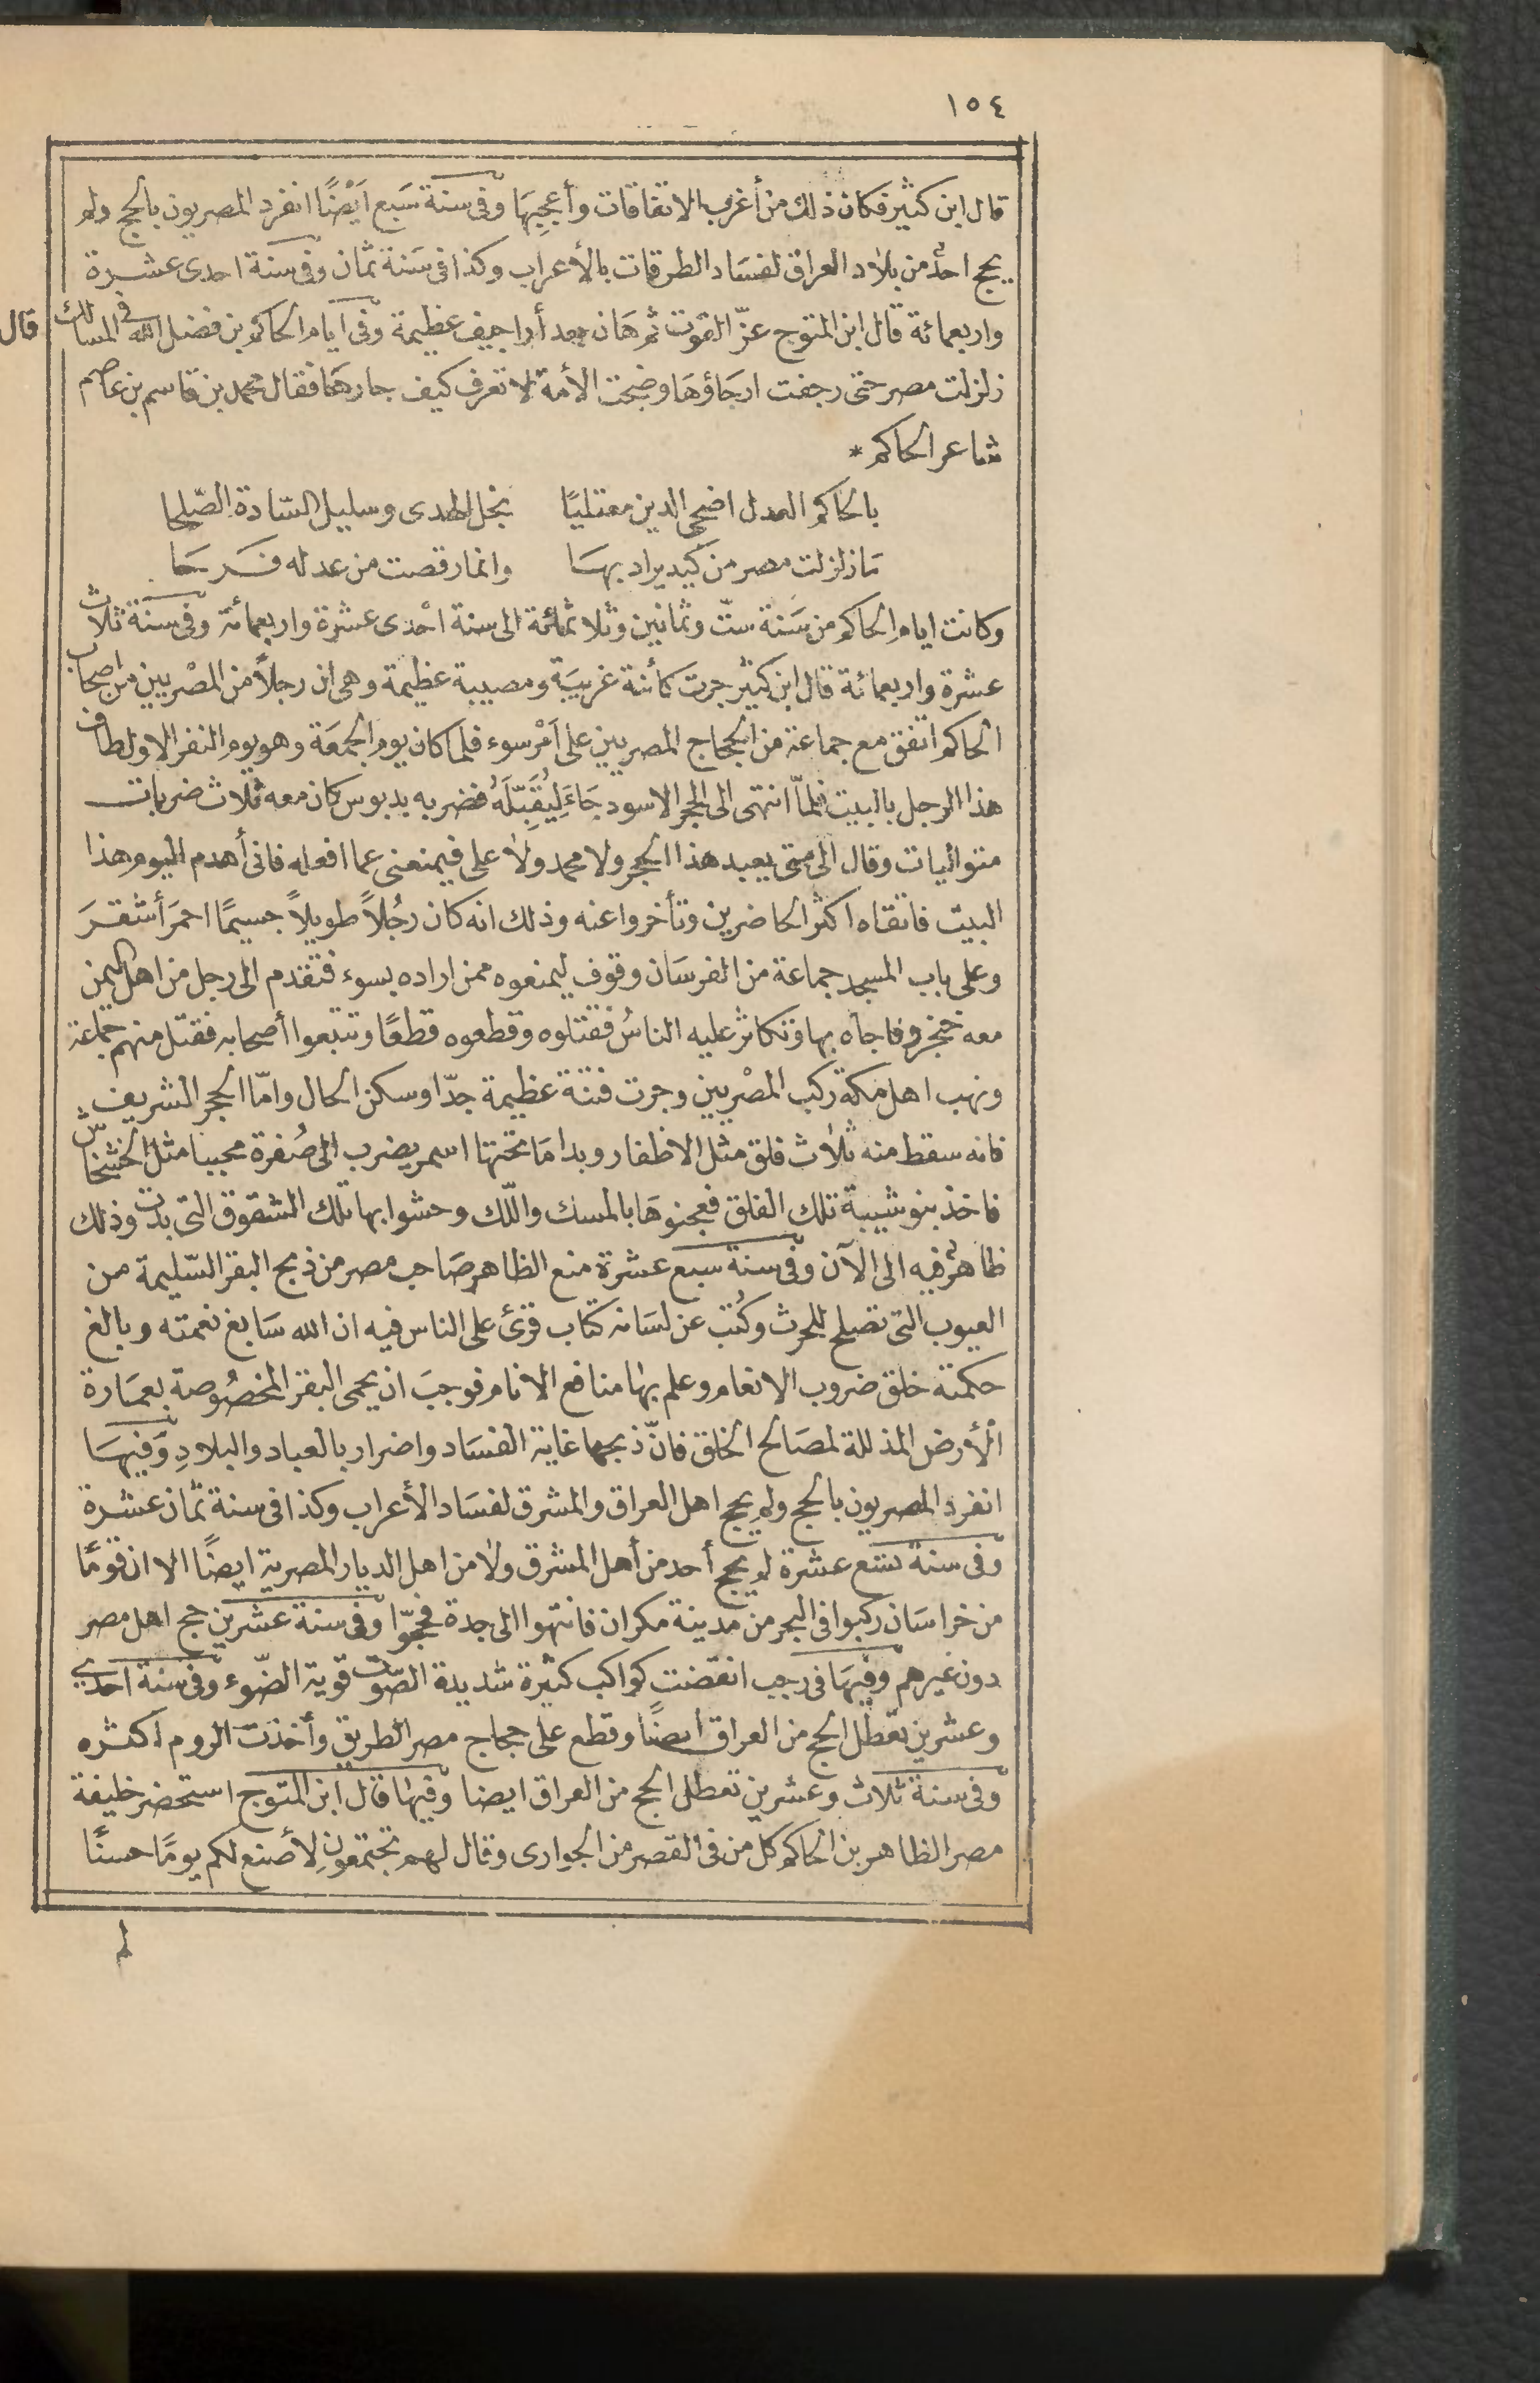 ١٥٤
قال ابن كثير فكان ذلك من أغرب الاتفاقات وأعجبها وفى سنة سَبع اَيْضًا انفرد المصريون بالحج ولم
يحج احدٌ من بلاد العراق لفسَاد الطرقات بالأعراب وكذا فى سَنة ثمان وفى سنة احدى عشرة
واربعمائة قال ابن المتوج عزّ القوت ثم هَان بعد أراجيف عظيمة وفى ايام الحاكم بن فضل الله فى المسالك
قال
زلزلت مصر حتى رجفت ارجَاؤهَا وضجت الأمة لا تعرف كيف جارهَا فقال محمد بن قاسم بن عاصم
شاعر الحاكم *
بالحاكم العدل اضحى الدين معتليًا نجل الهدى وسليل السّادة الصّلحا
مَا زلزلت مصر من كيد يراد بهسَا وانما رقصت من عدله فرحَا
وكانت ايام الحاكم من سَنة ستّ وثمانين وثلاثمائة الى سنة احْدى عشرة واربعمائة وفى سَنة ثلاث
عشرة واربعمائة قال ابن كثير جرت كائنة غريبَة ومصيبة عظيمة وهى ان رجلاً من المصْريين من اصحاب
الحاكم اتفق مع جماعة من الحجاج المصريين على اَمْر سوء فلما كان يوم الجمعَة وهو يوم النفر الاول طاف
هذا الرجل بالبيت فلمّا انتهى الى الحجر الاسود جَاءَ لِيُقَبِّلَهُ فضربه بدبوس كان معه ثلاث ضربات
متواليات وقال الى متى يعبد هذا الحجر ولا محمد ولا على فيمنعنى عما افعله فانى أهدم اليوم هذا
البيت فاتقاه اكثر الحاضرين وتأخروا عنه وذلك انه كان رجُلاً طويلاً جسيمًا احمرَ أشقرَ
وعلى باب المسجد جماعة من الفرسَان وقوف ليمنعوه ممن اراده بسوء فتقدم الى رجل من اهل اليمن
معه خنجر وفاجأه بها وتكاثر عليه الناسُ فقتلوه وقطعوه قطعًا وتتبعوا أصحابه فقتل منهم جماعة
ونهب اهل مكة ركب المصْريين وجرت فتنة عظيمة جدّا وسكن الحال وامّا الحجر الشريف
فانه سقط منه ثلاث فلق مثل الاظفار وبدا مَا تحتها اسمر يضرب الى صُفرة محببا مثل الخشخاش
فاخذ بنو شيبة تلك الفلق فعجنوهَا بالمسك واللّك وحشوا بها تلك الشقوق التى بدت وذلك
ظاهرٌ فيه الى الآن وفى سنة سبع عشرة منع الظاهر صَاحب مصر من ذبح البقر السّليمة من
العيوب التى تصلح للحرث وكُتب عن لسَانه كتاب قرئ على الناس فيه ان الله سَابغ نعمته وبالغ
حكمته خلق ضروب الانعام وعلم بها منافع الانام فوجبَ ان يحمى البقر المخصُوصة بعمَارة
الأرض المذللة لمصَالح الخلق فانّ ذبحها غاية الفسَاد واضرار بالعباد والبلادِ وَفيهسَا
انفرد المصريون بالحج ولم يحج اهل العراق والمشرق لفسَاد الأعراب وكذا فى سنة ثمان عشرة
وفى سنة تسع عشرة لم يحج أحد من أهل المشرق ولا من اهل الديار المصرية ايضًا الا ان قومًا
من خراسَان ركبوا فى البحر من مدينة مكران فانتهوا الى جدة فحجّوا وفى سنة عشرين حج اهل مصر
دون غيرهم وفيهَا فى رجب انقضت كواكب كثيرة شديدة الصّوت قوية الضّوء وفى سنة احدى
وعشرين تعطل الحج من العراق ايضًا وقطع على حجاج مصر الطريق وأخذت الروم اكثره
وفى سنة ثلاث وعشرين تعطل الحج من العراق ايضا وفيها قال ابن المتوج استحضر خليفة
مصر الظاهر بن الحاكم كل من فى القصر من الجوارى وقال لهم تجتمعون لأصنع لكم يومًا حسنًا
لم